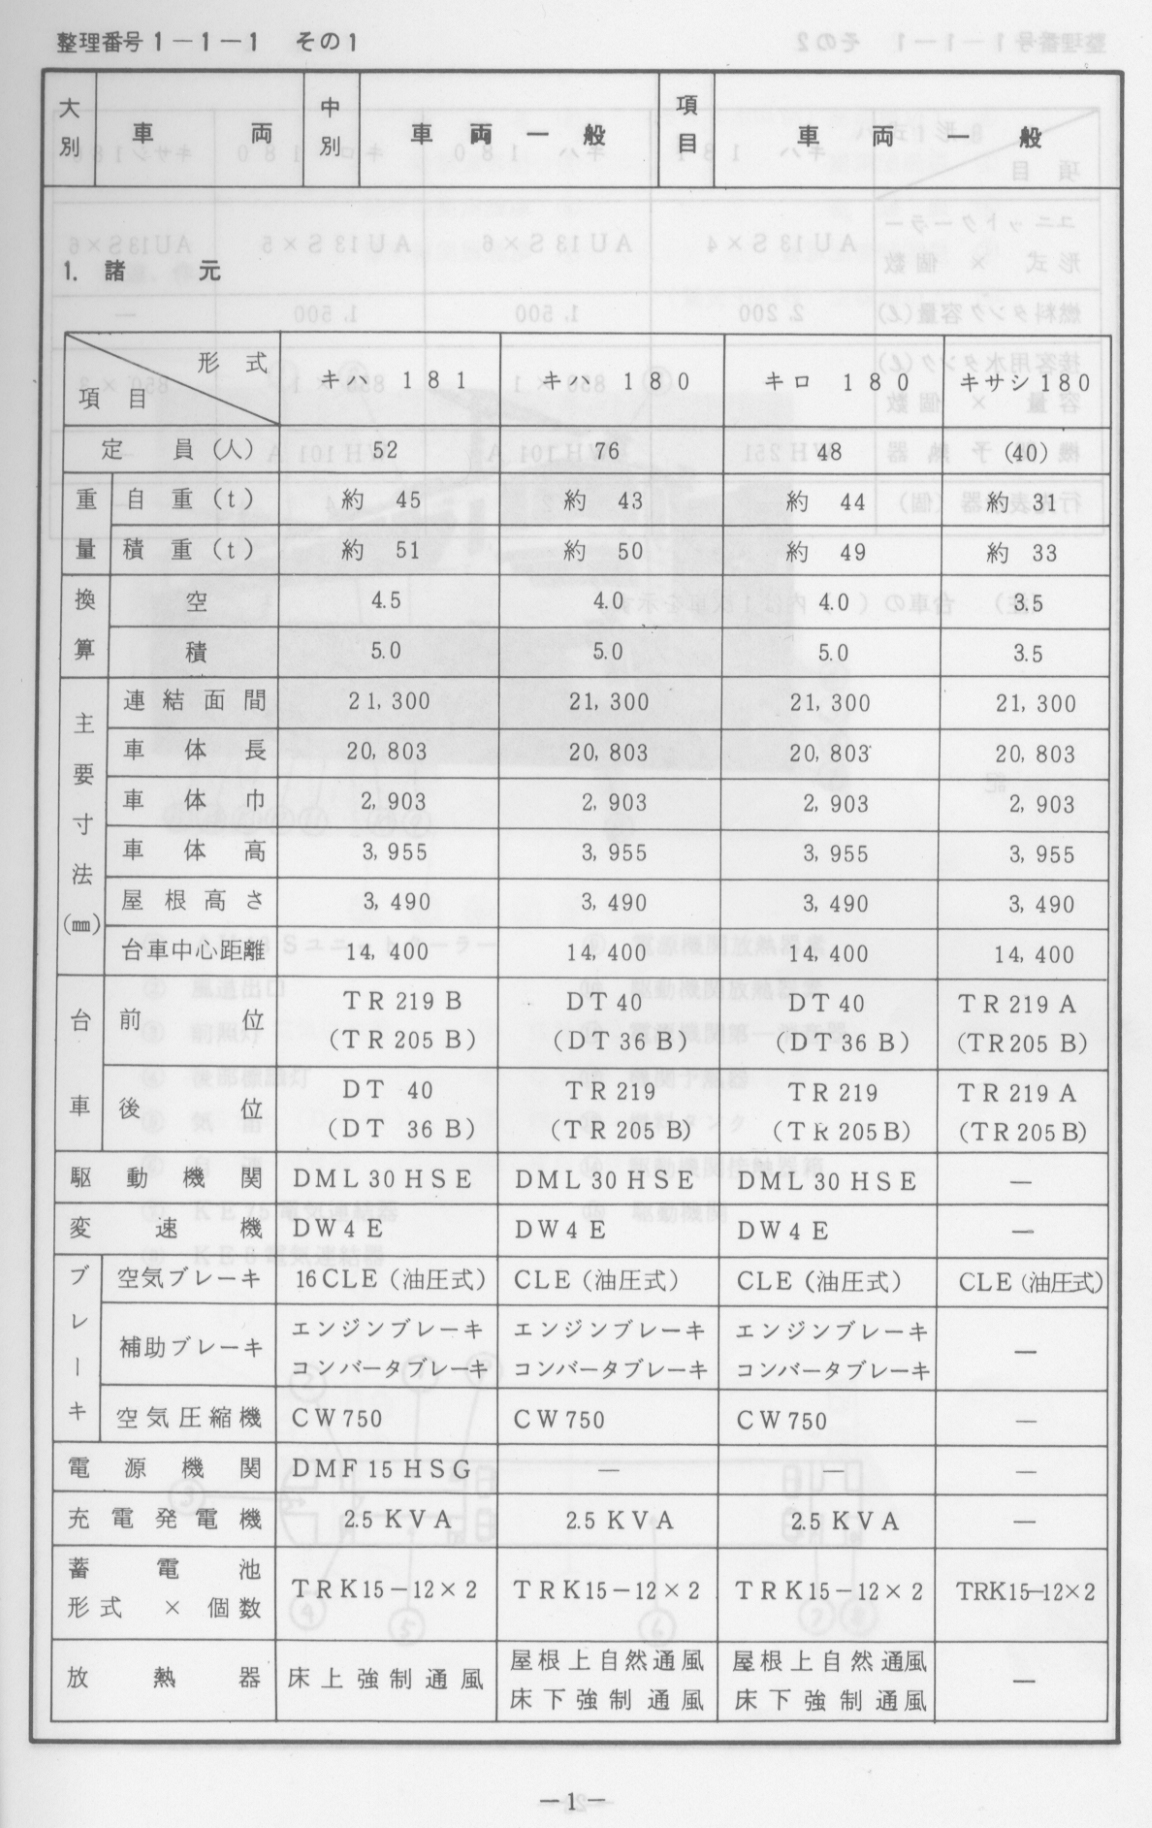 整理番号1-1-1 その1
大別 車両 中別 車両一般 項目 車両一般
1. 諸元
形式 項目 キハ 181 キハ 180 キロ 180 キサシ180
定員(人) 52 76 48 (40)
重量 自重(t) 約 45 約 43 約 44 約 31
積重(t) 約 51 約 50 約 49 約 33
換算 空 4.5 4.0 4.0 3.5
積 5.0 5.0 5.0 3.5
主要寸法(㎜) 連結面間 21,300 21,300 21,300 21,300
車体長 20,803 20,803 20,803 20,803
車体巾 2,903 2,903 2,903 2,903
車体高 3,955 3,955 3,955 3,955
屋根高さ 3,490 3,490 3,490 3,490
台車中心距離 14,400 14,400 14,400 14,400
台車 前位 TR219B DT40 DT40 TR219A
(TR205B) (DT36B) (DT36B) (TR205B)
後位 DT 40 TR219 TR219 TR219A
(DT 36B) (TR205B) (TR205B) (TR205B)
駆動機関 DML30HSE DML30HSE DML30HSE —
変速機 DW4E DW4E DW4E —
ブレーキ 空気ブレーキ 16CLE(油圧式) CLE(油圧式) CLE(油圧式) CLE(油圧式)
補助ブレーキ エンジンブレーキ エンジンブレーキ エンジンブレーキ —
コンバータブレーキ コンバータブレーキ コンバータブレーキ
空気圧縮機 CW750 CW750 CW750 —
電源機関 DMF15HSG — — —
充電発電機 2.5KVA 2.5KVA 2.5KVA —
蓄電池
形式×個数 TRK15-12×2 TRK15-12×2 TRK15-12×2 TRK15-12×2
放熱器 床上強制通風 屋根上自然通風 屋根上自然通風 —
床下強制通風 床下強制通風
-1-